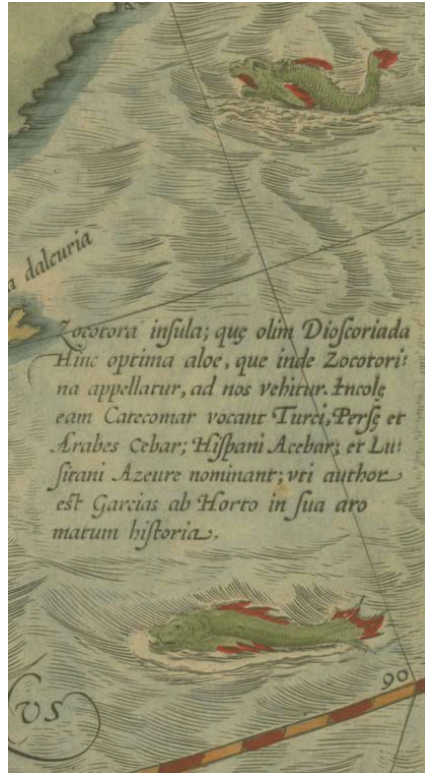 a dalcuria
Zocotora inſula; quę olim Dioſcoriada
Hinc optima aloe, que inde Zocotori:
na appellatur, ad nos vehitur. Incolę
eam Catecomar vocant Turci, Perſę et
Arabes Cebar; Hiſpani Acebar; et Lu:
ſitani Azeure nominant; vti author
eſt Garcias ab Horto in ſua aro
matum hiſtoria.
90
VS